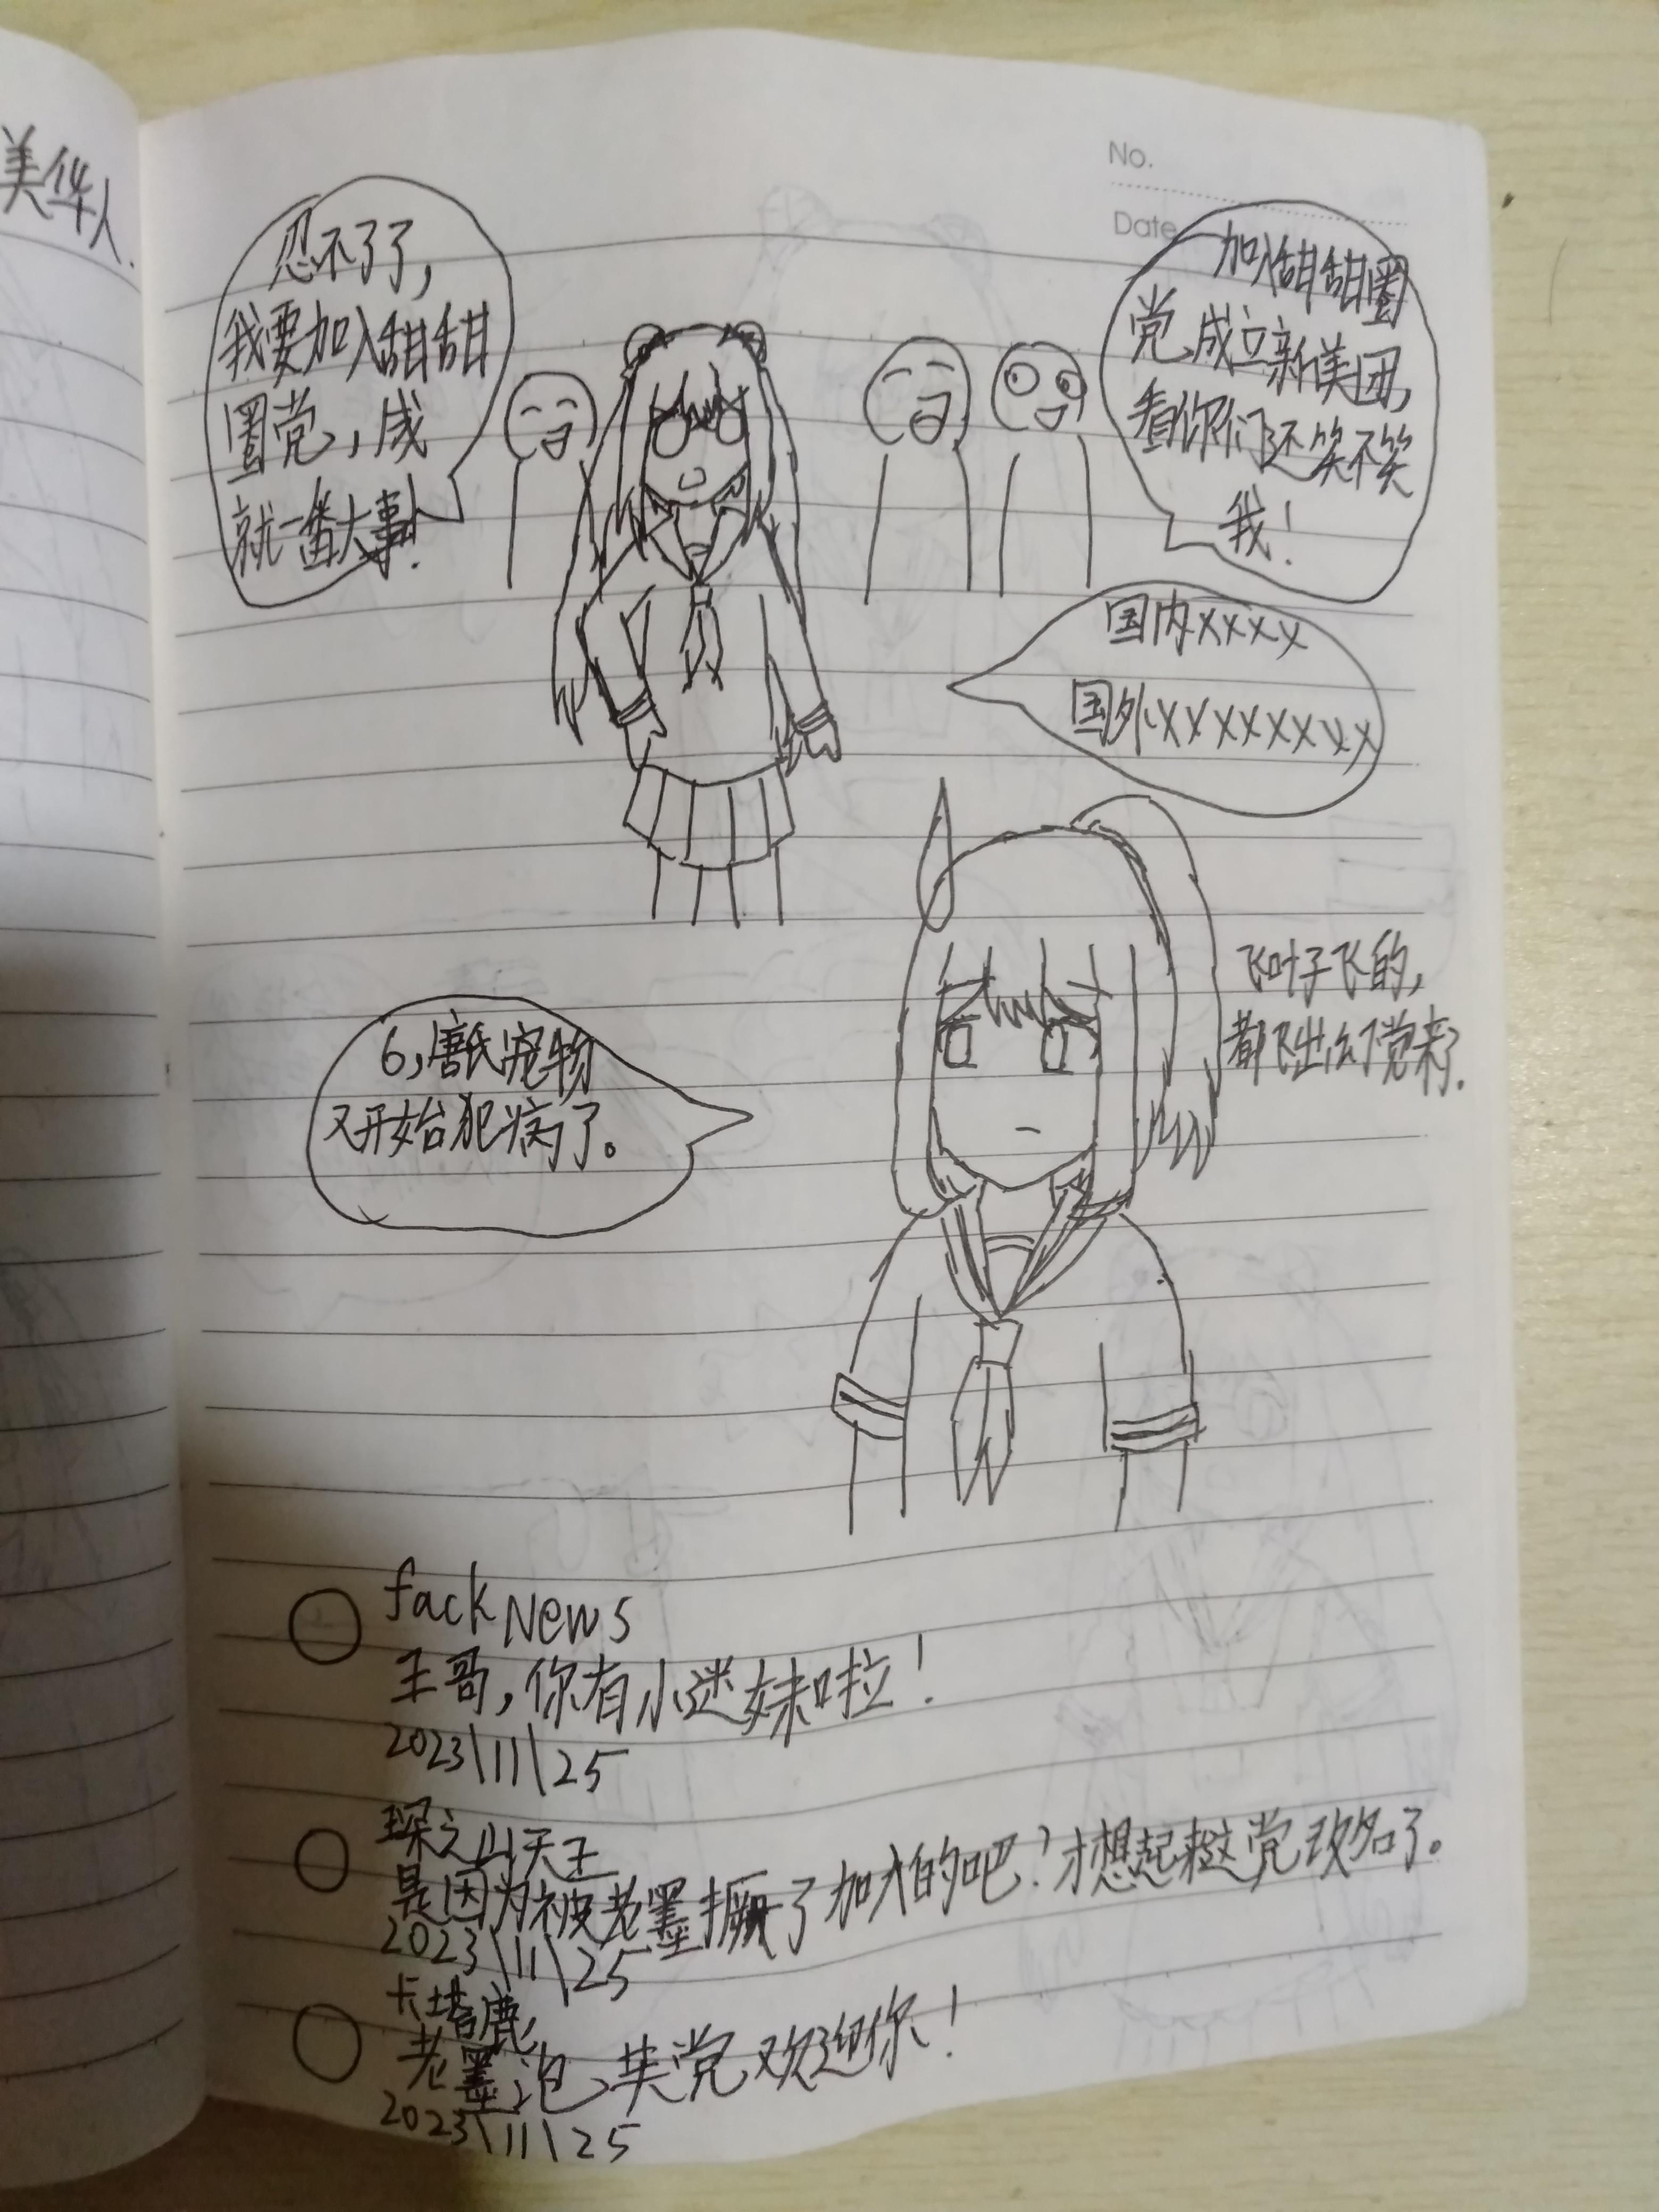 美华人.
No.
Date
忍不了了,
我要加入甜甜
圈党,成
就一番大事!
加入甜甜圈
党,成立新美团,
看你们还笑不笑
我!
国内xxxx
国外xxxxxxxx
6,唐氏宠物
又开始犯病了。
飞叶子飞的,
都飞出幺下党来了.
fack News
王哥,你有小迷妹啦!
2023\11\25
琛之山天王
是因为被老墨撅了加入的吧?才想起来这党改名了。
2023\11\25
卡塔鹿,
老墨泡英党欢迎你!
2023\11\25